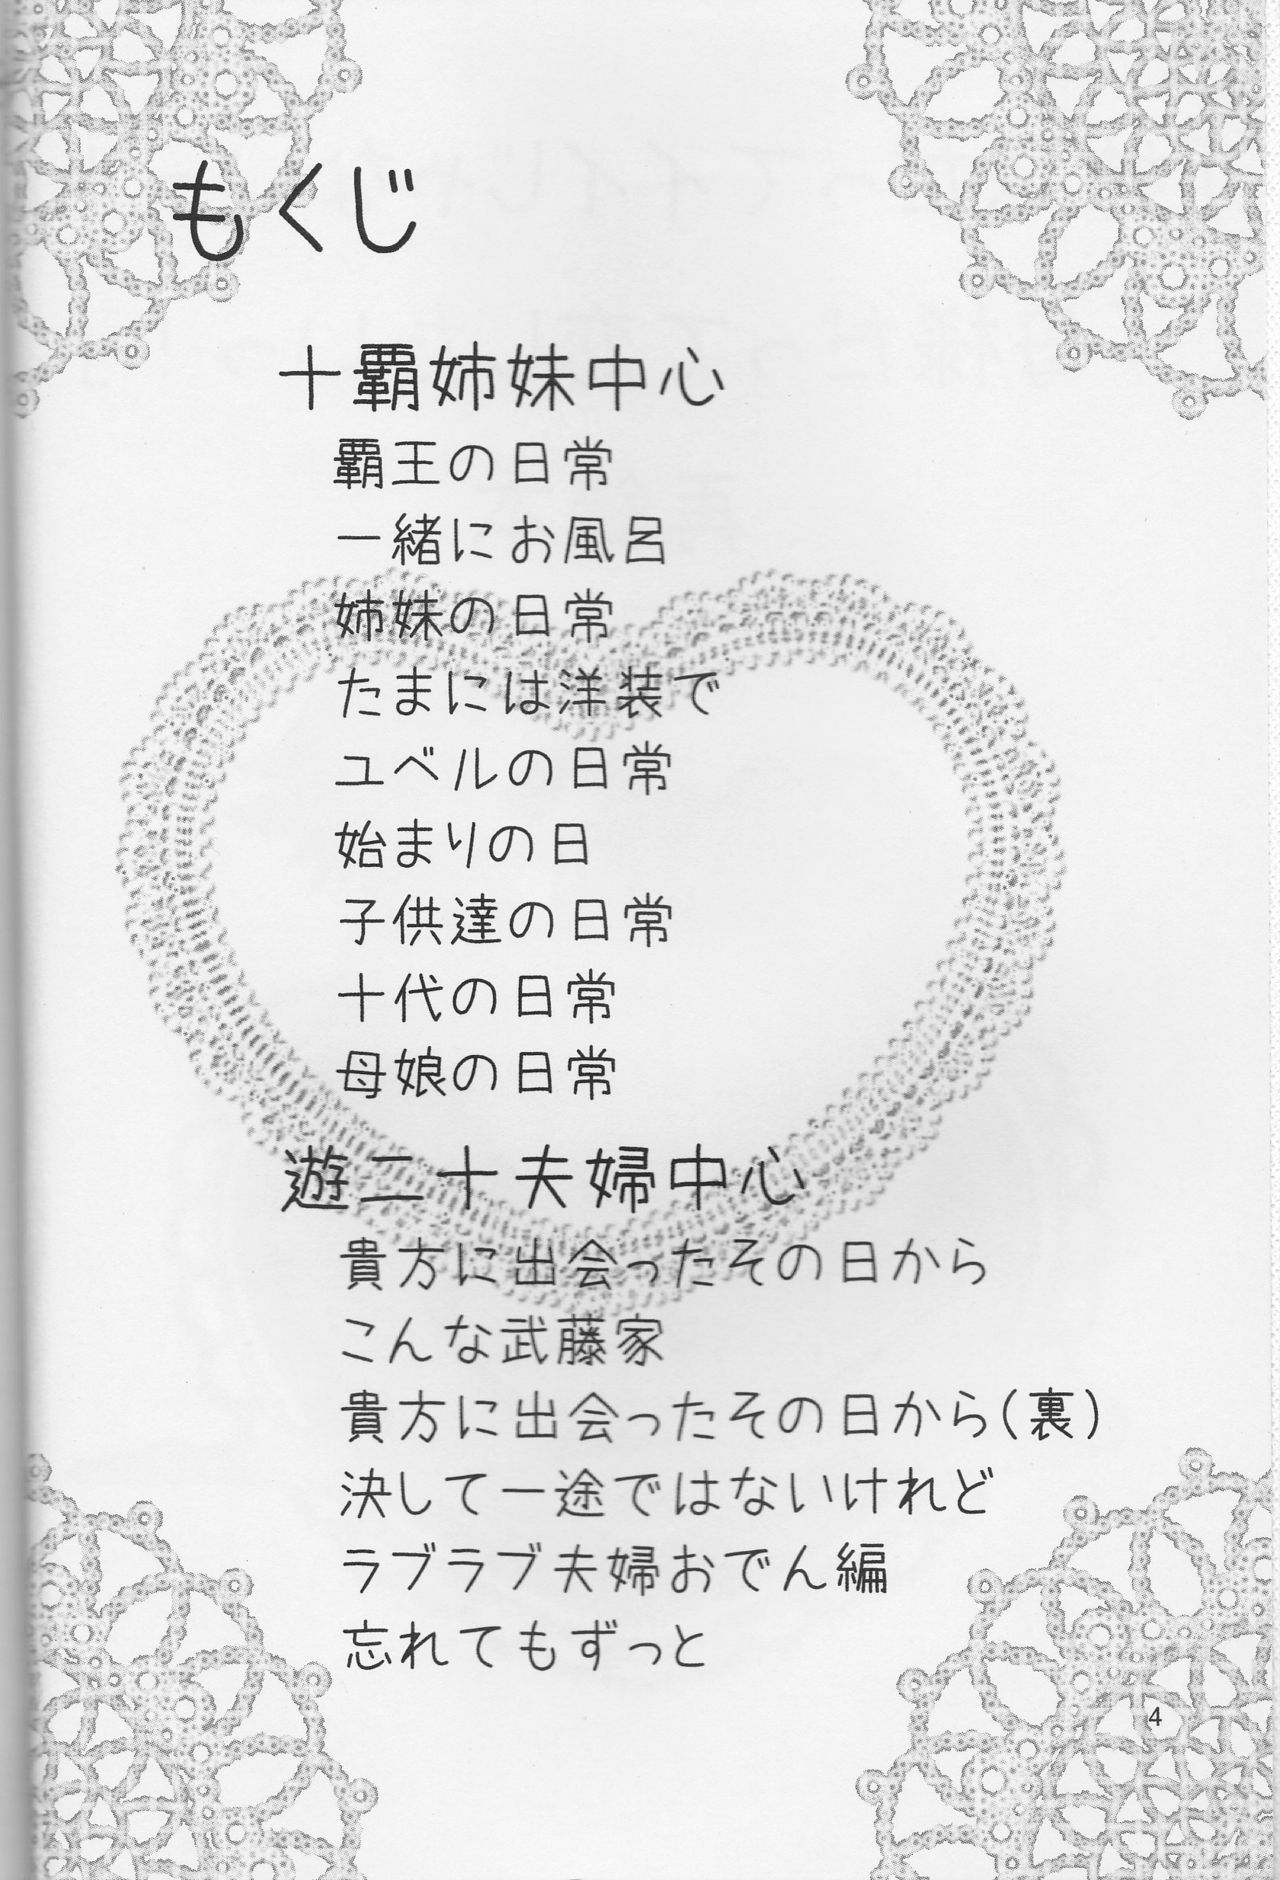 もくじ
十覇姉妹中心
覇王の日常
一緒にお風呂
姉妹の日常
たまには洋装で
ユベルの日常
始まりの日
子供達の日常
十代の日常
母娘の日常
遊二十夫婦中心
貴方に出会ったその日から
こんな武藤家
貴方に出会ったその日から(裏)
決して一途ではないけれど
ラブラブ夫婦おでん編
忘れてもずっと
4